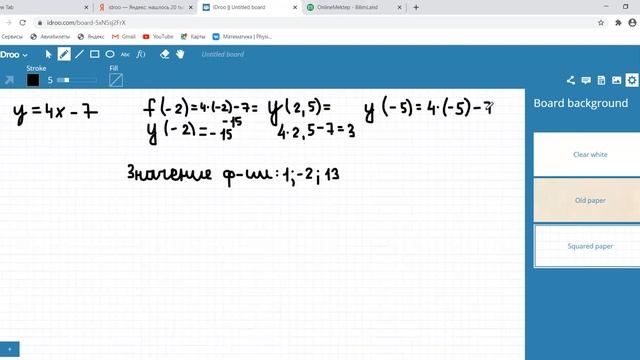 w Tab
idroo — Яндекс: нашлось 20 ты
IDroo || Untitled board
OnlineMektep - BilimLand
idroo.com/board-5xN5sj2FrX
Сервисы Авиабилеты Яндекс СМИ2 YouTube Карты Математика | Physi...
Droo Abc f() Untitled board
Stroke
5
Fill
Board background
Clear white
Old paper
Squared paper
y = 4x - 7
f(-2)=4·(-2)-7=
-15
y(-2)=-15
y(2,5)=
4·2,5-7=3
y(-5)=4·(-5)-7
Значение ф-ии: 1; -2; 13